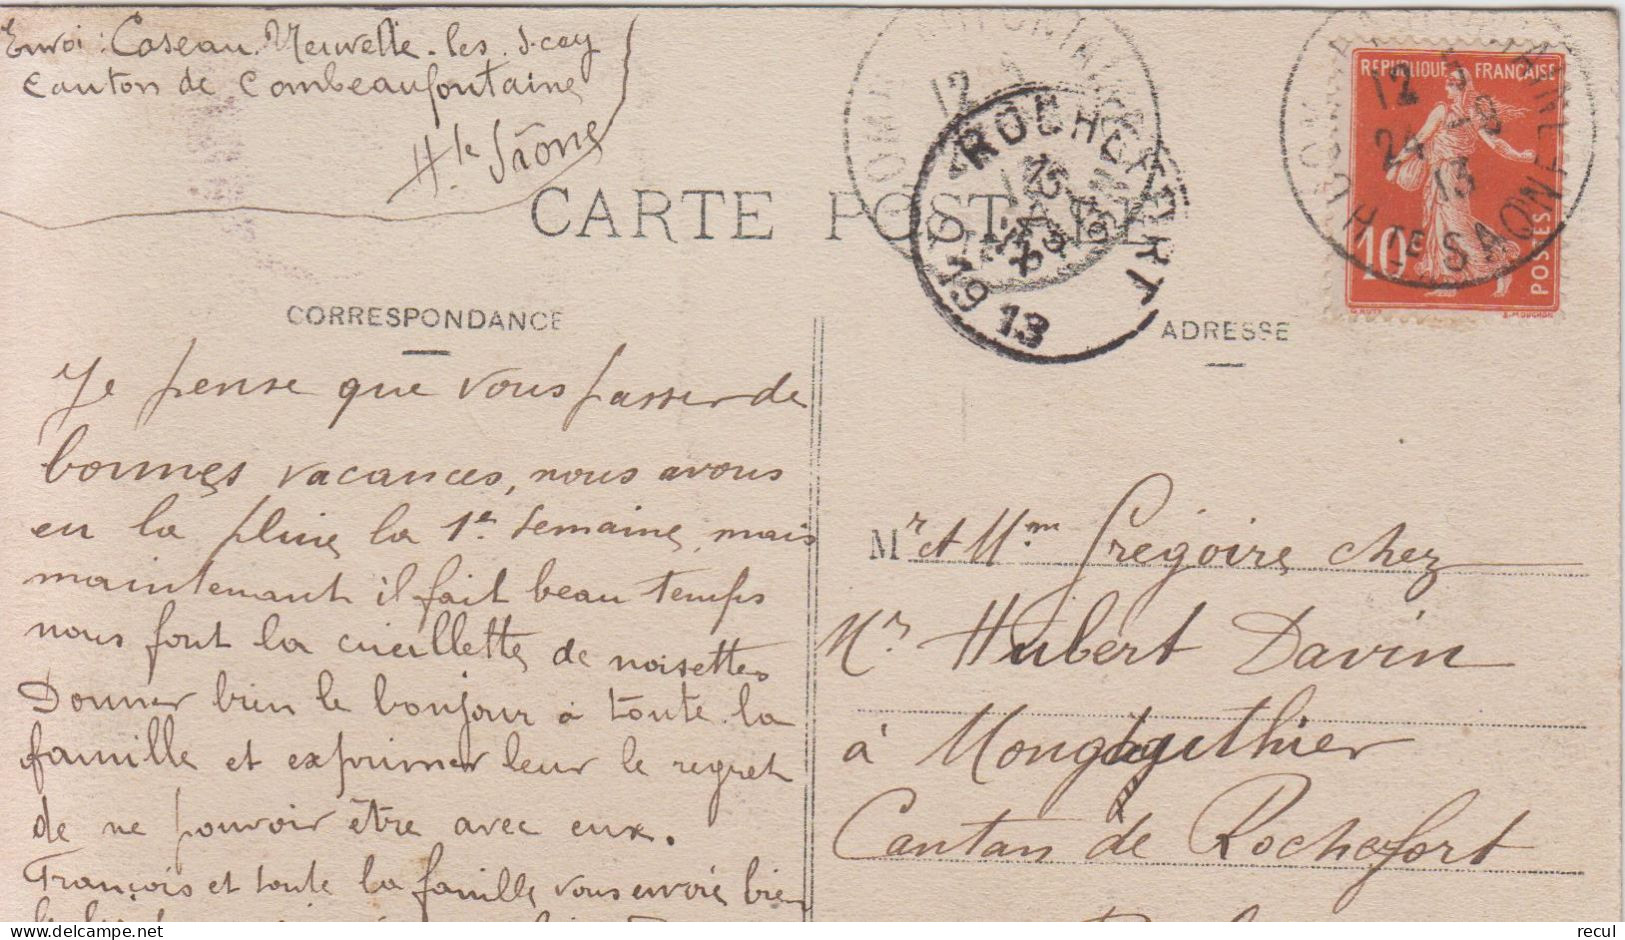 Envoi : Caseau. Neuvelle-les-s-cey
Canton de Combeaufontaine
Hte Sâone
CARTE POSTALE
CORRESPONDANCE
Je pense que vous passer de
bonnes vacances, nous avons
eu la pluie la 1e semaine, mais
maintenant il fait beau temps
nous font la cueillette de noisettes
Donner bien le bonjour à toute la
famille et exprimer leur le regret
de ne pouvoir être avec eux.
François et toute la famille vous envoie bien
12
ROCHEFORT
13
REPUBLIQUE FRANÇAISE
12
24 -8
13
HTE SAONE
10c
POSTES
ADRESSE
Mr et Mme Grégoire chez
Mr Hubert Davin
à Montgauthier
Canton de Rochefort
recul